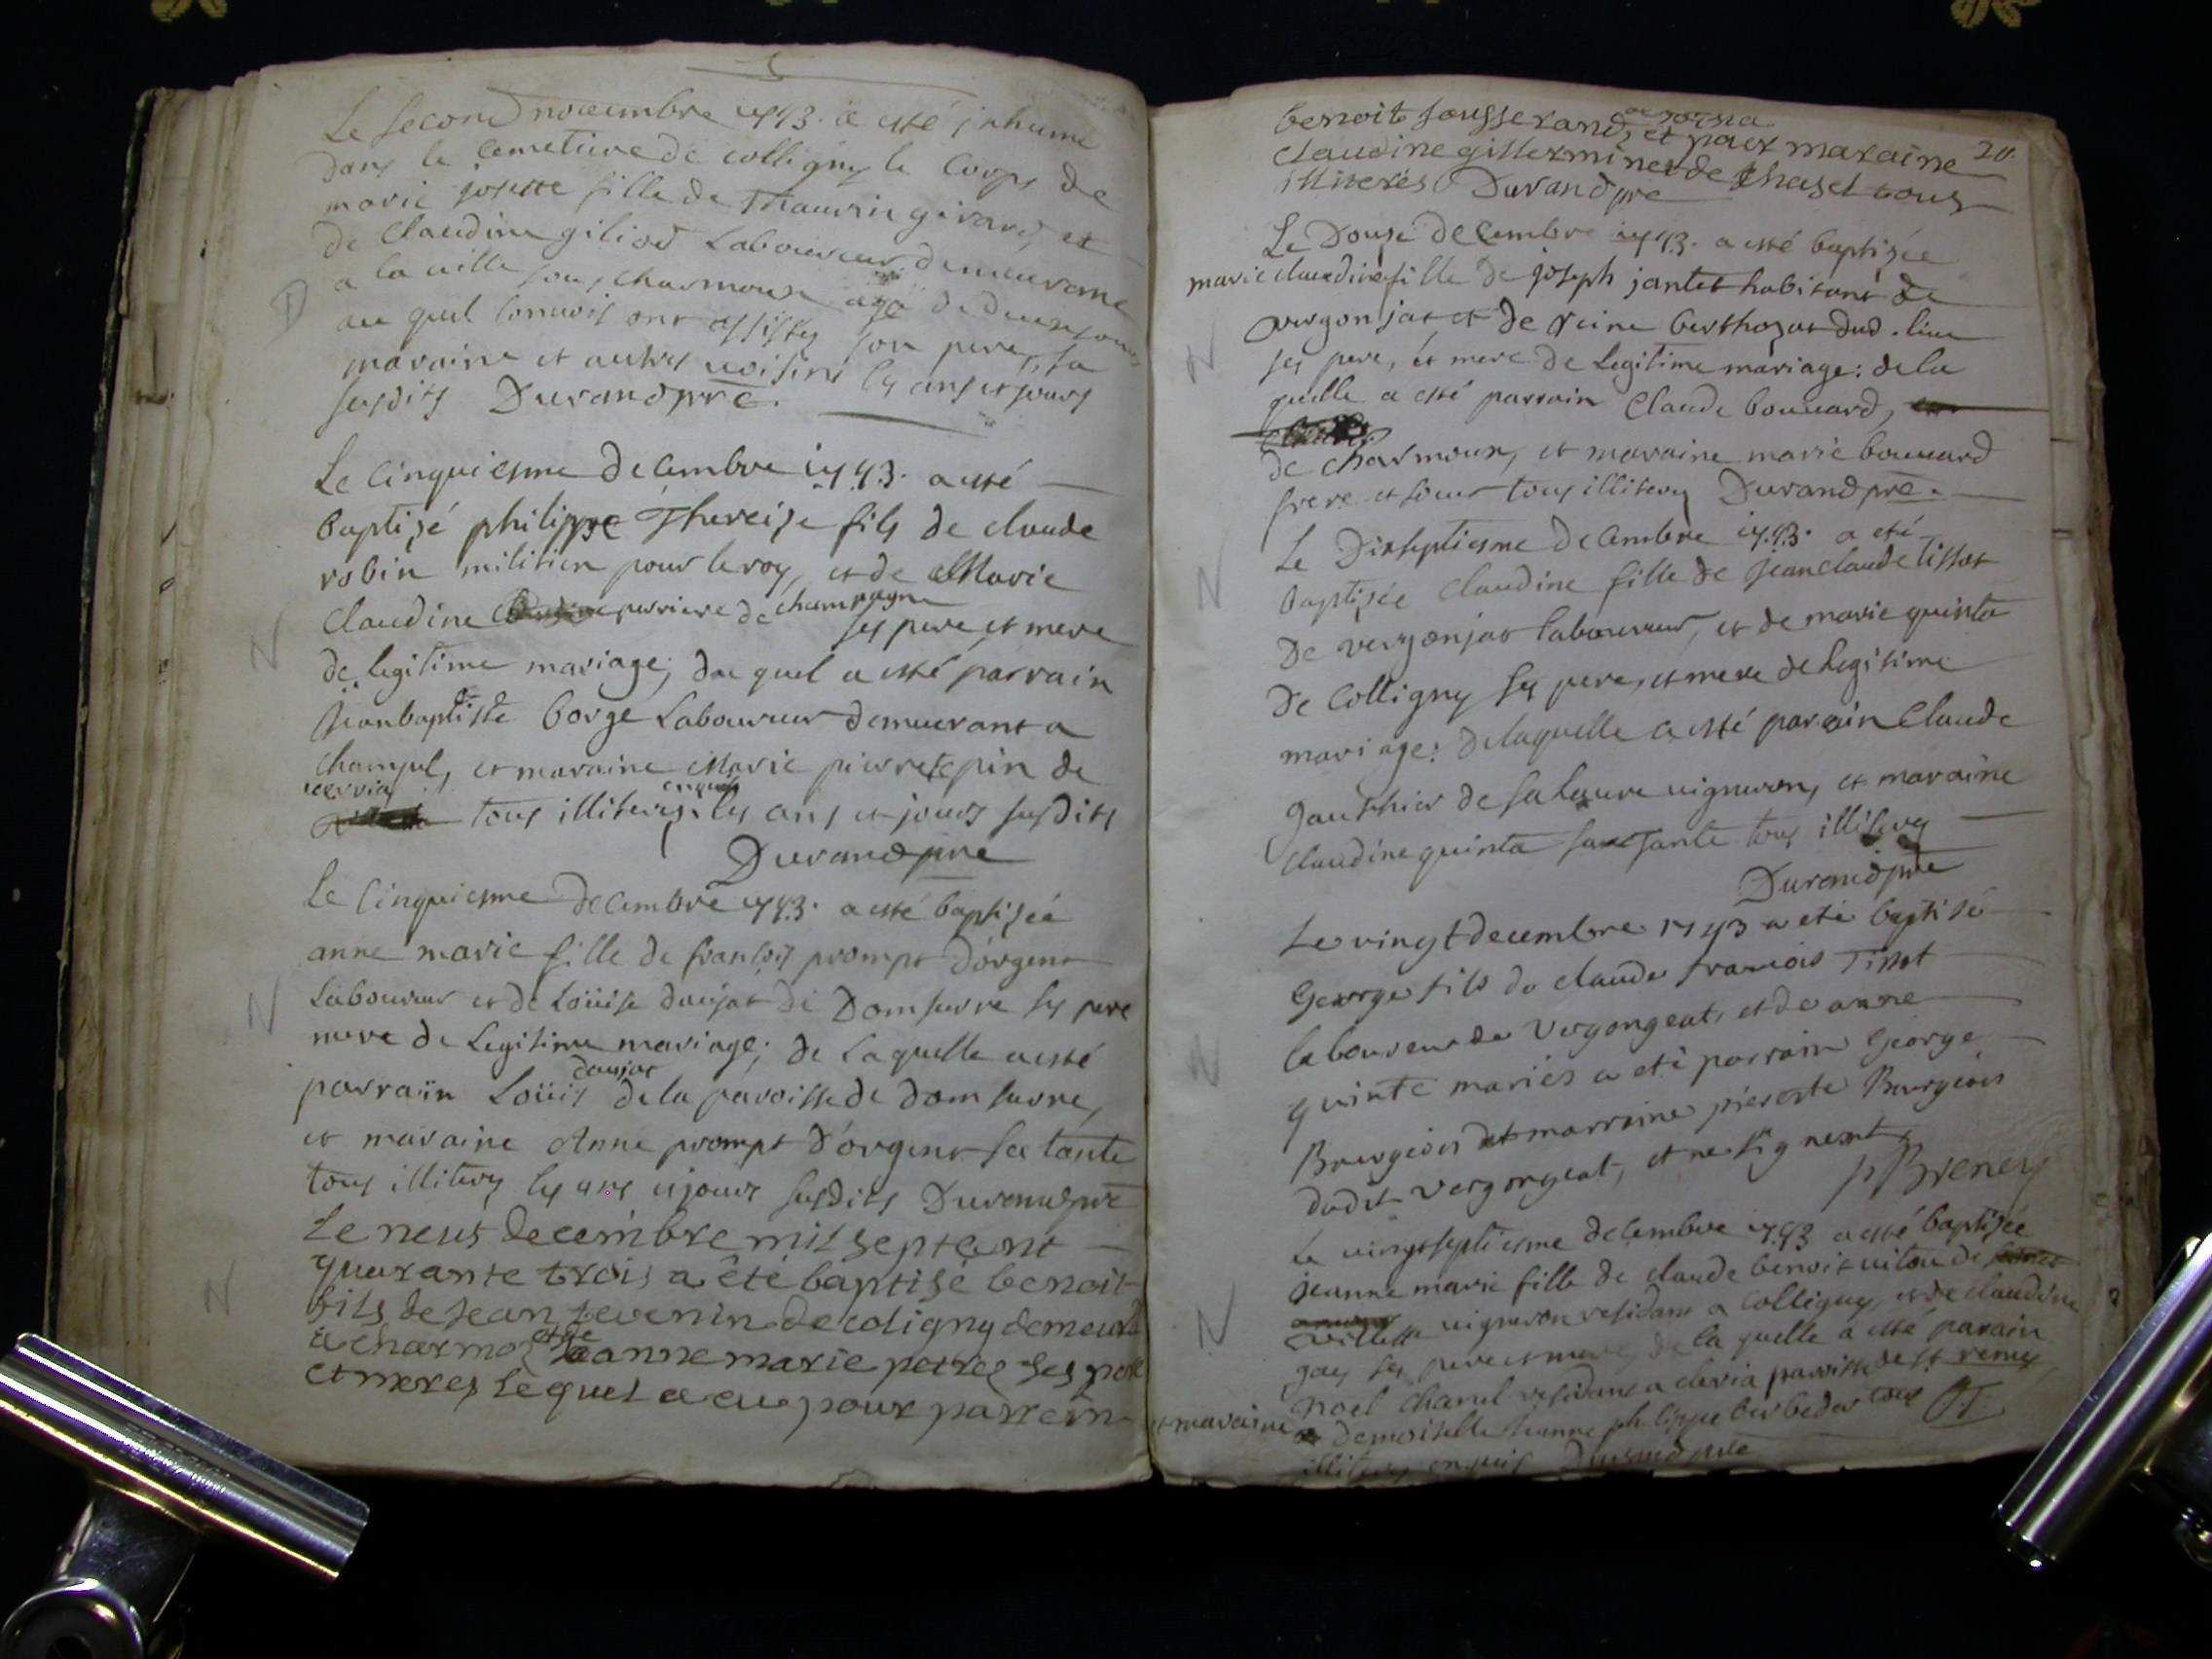 Le second novembre 1743. a esté inhumé
dans le cemetiere de colligny le corps de
marie josette fille de Thaurin girard, et
de Claudine giliod Laboureur demeurant
a la ville sous charmoux agé de deux jours,
au quel convois ont assistes son pere, sa
maraine et autres voisins les ans et jours
susdits Durand pre.
D
Le cinquiesme decembre 1743. a esté
baptisé philippe Thereise fils de claude
robin militien pour le roy, et de Marie
Claudine perriere de champagne
ses pere et mere
de legitime mariage; du quel a esté parrain
Jeanbaptiste borge Laboureur demeurant a
champel, et maraine Marie pierrete pin de
verria
tous illiterés enquis les ans et jours susdits
Durand pre
N
Le Cinquiesme decembre 1743. a esté baptisée
anne marie fille de francois prompt d'orgent
Laboureur et de Loüise daujat de Domsurre ses pere
mere de Legitime mariage; de Laquelle a esté
daujat
parraïn Loüis de la paroisse de domsurre,
et maraine Anne prompt d'orgent sa tante
tous illiterés les ans et jours susdits Durand pre
N
Le neuf decembre mil sept cent
quarante trois a êté baptisé benoit
fils de jean jevenin de coligny demeurt
a charmoz et de jeanne marie petrez ses pere
et meres Lequel a eu pour parrein
N
20.
benoit jousserand, et pour maraine
claudine gillerminet de Chasel tous
illiterés Durand pre
Le Dousé decembre 1743. a esté baptisée
marie claudine fille de joseph jantet habitant de
vergonjat et de reine berthozat dud. lieu
ses pere, et mere de Legitime mariage: de la
quelle a esté parrain Claude bouvard,
de charmoux, et maraine marie bouvard
frere et soeur tous illiterés Durand pre.
N
Le Dixseptiesme decembre 1743. a eté
baptisée Claudine fille de jeanclaude tissot
de vergonjat laboureur, et de marie quinta
de Colligny ses pere, et mere de legitime
mariage: delaquelle a esté parain Claude
gauthier de vigneron, et maraine
claudine quinta sa tante tous illiterés
Durand pre
N
Le vingt decembre 1743 a eté baptisé
George fils de claude francois Tissot
laboureur de Vergongeat, et de anne
quinte mariés a eté parrain George
Bourgeois et marraine pierrette Bourgeois
dudit vergongeat, et ne signent
p Breney
N
Le vingtseptiesme decembre 1743 a esté baptisée
jeanne marie fille de claude benoit vitou de
vigneron residant a colligny, et de claudine
gay ses pere et mere, de la quelle a esté parain
noel Chanel residant a clevia paroisse de st remy
et maraine demoiselle jeanne philippe berbedot tous
illiterés enquis Durand pre
N